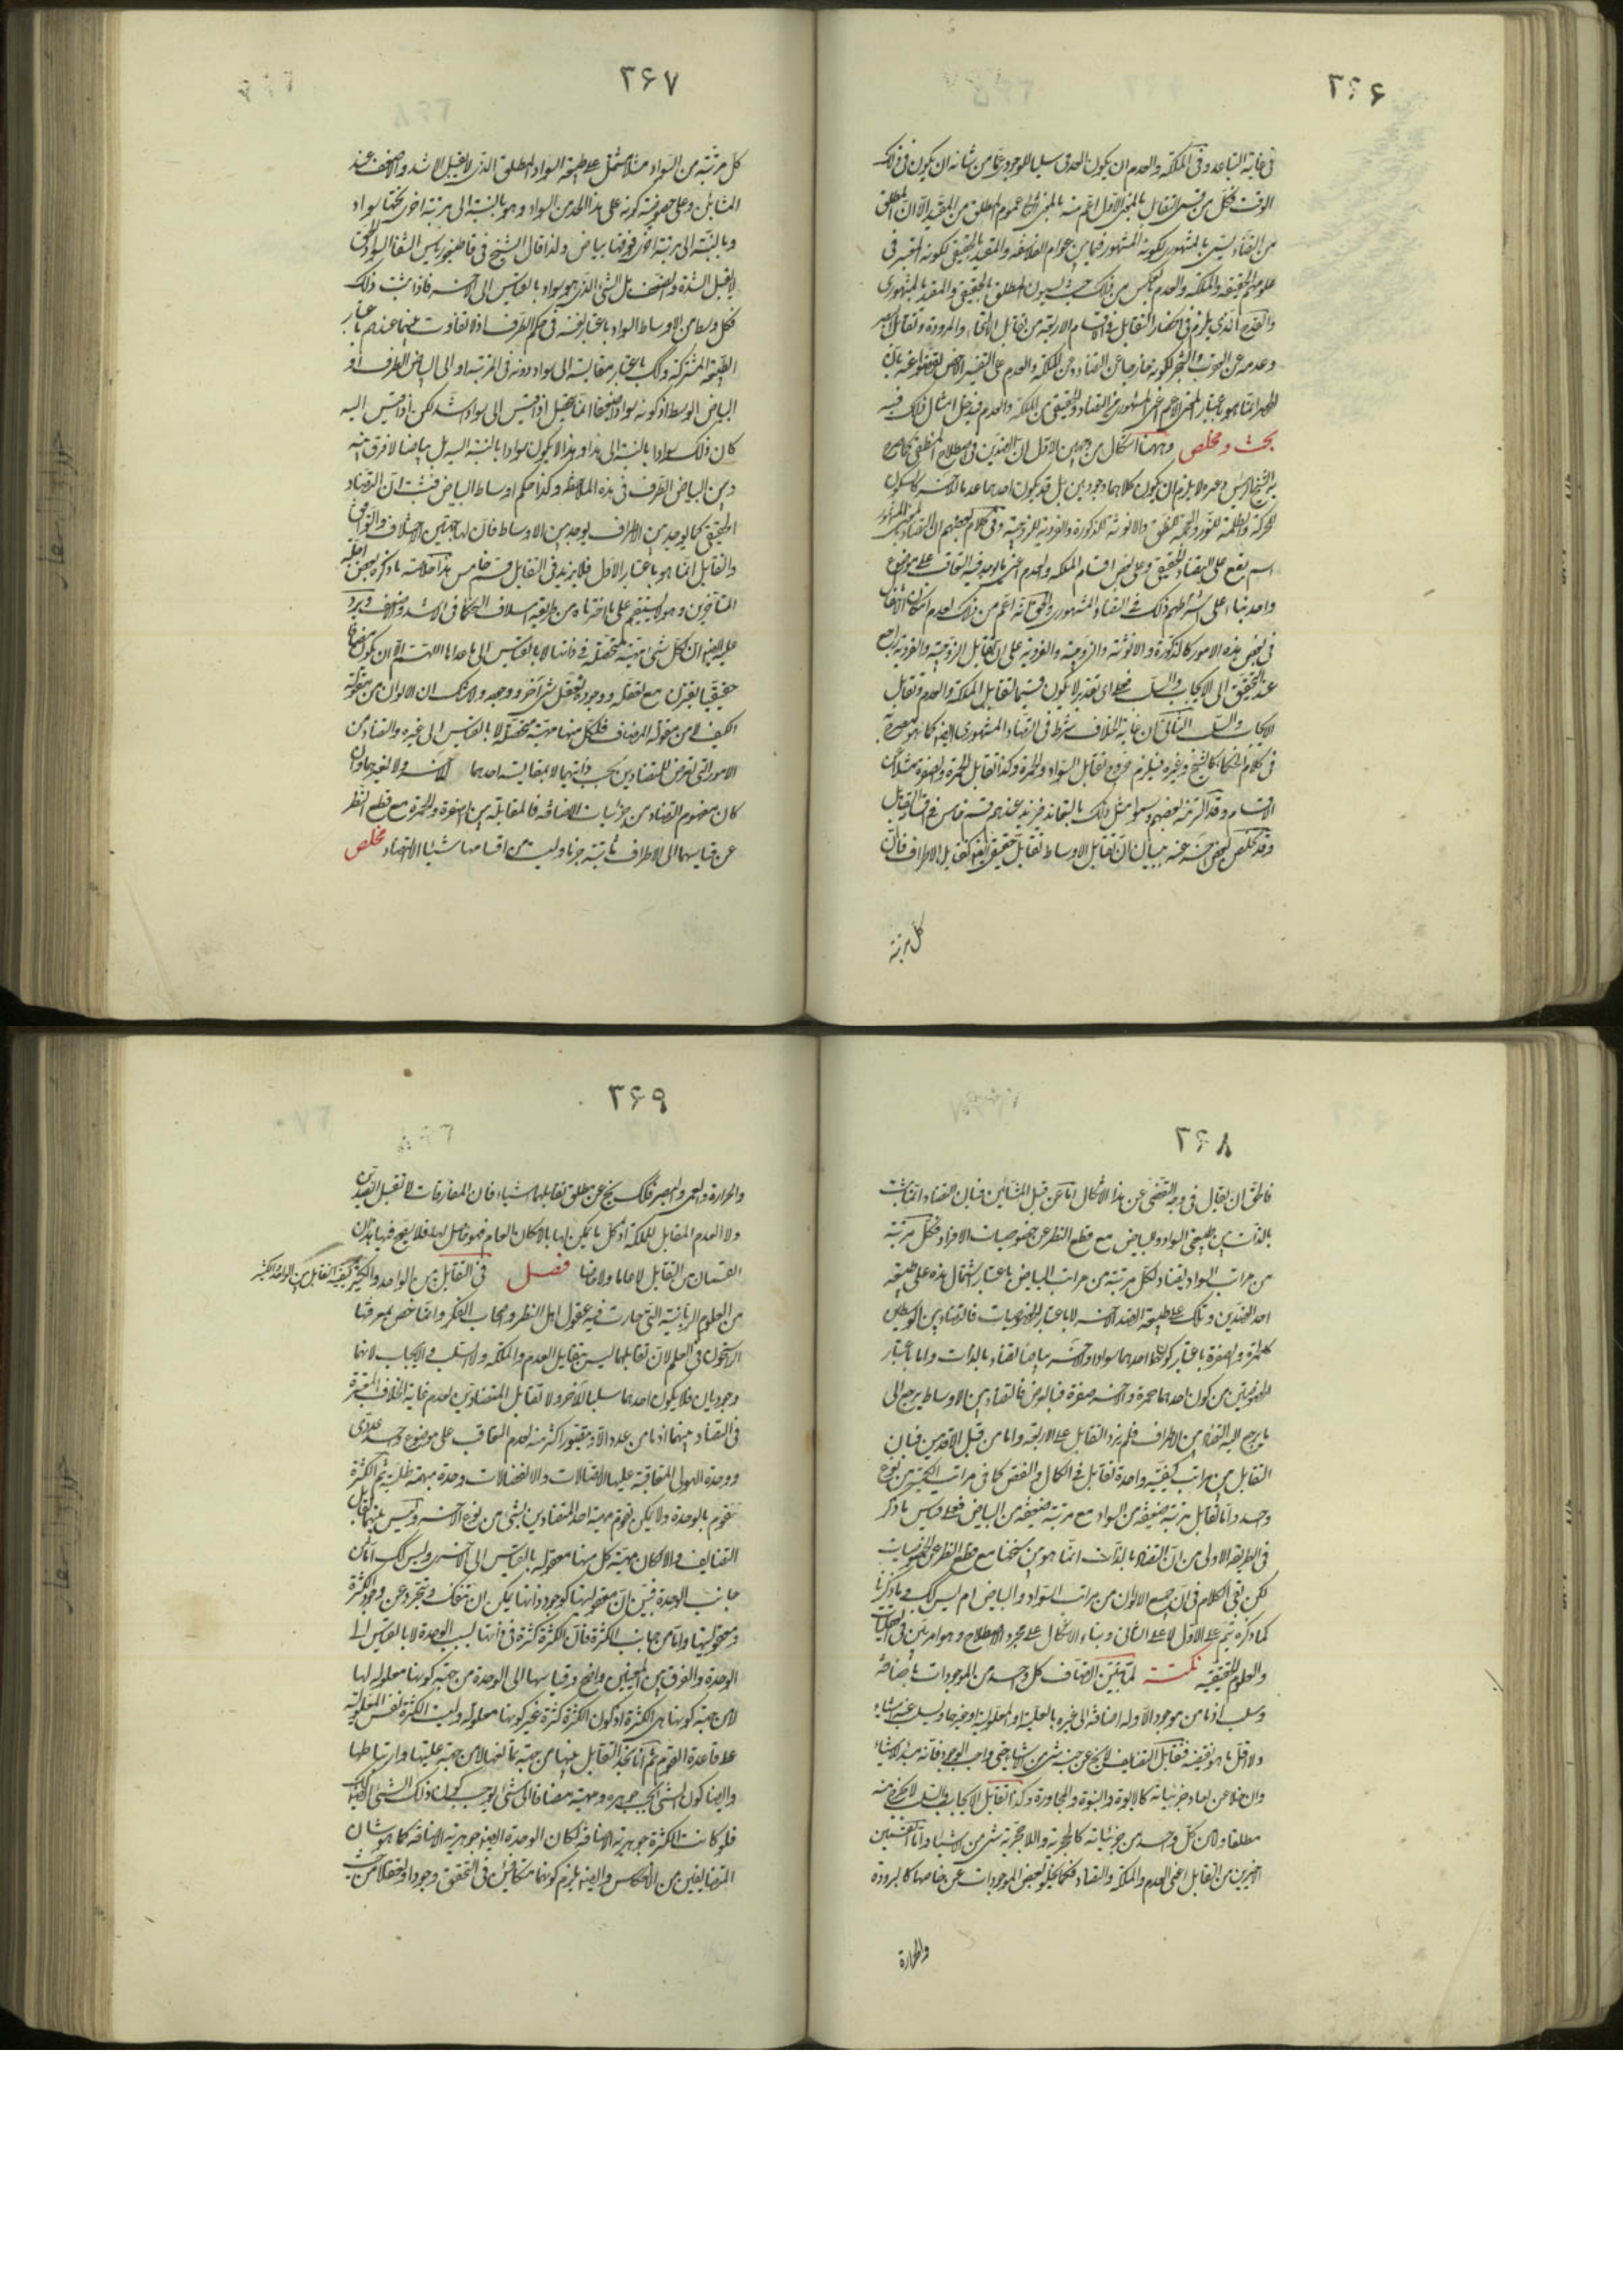 ٣۶۶
فى غاية التباعد وفى الملكة والعدم ان يكون العدمى سلبا للوجودى عمّا من شانه ان يكون فى ذلك
الوقت فكل من قسمى التقابل بالمعنى الاول اعم منه بالمعنى الثانى عموم المطلق من المقيد الا ان المطلق
من التضاد يسمى بالمشهورى لكونه المشهور فيما بين عوام الفلاسفه والمقيد بالحقيقى لكونه المعتبر فى
علومهم الحقيقيه والملكة والعدم بالعكس من ذلك حيث يسمون المطلق بالحقيقى والمقيد بالمشهورى
بحث ومخلص وههنا اشكال من وجهين الاول ان الضدين فى اصطلاح المنطقى
واحد بناء على اشتراطهم ذلك فى التضاد المشهورى
فى بعض هذه الامور كالذكورة والانوثة والزوجية والفردية على ان تقابل الزوجية والفردية راجع
عند التحقيق الى الايجاب والسلب فعلى اى تقدير لا يكون قسيما لتقابل الملكة والعدم وتقابل
الايجاب والسلب الثانى ان غاية الخلاف شرط فى التضاد المشهورى ايضا كما هو
فى كلام الحكماء كالشيخ وغيره فيلزم خروج تقابل السواد والحمرة وكذا تقابل الحمرة والصفرة مثلا عن
الاقسام وقد التزمه بعضهم وسموا مثل ذلك بالتعاند فزيد عندهم قسم خامس فى اقسام التقابل
وقد تخلص بعض عنه ببيان ان تقابل الاوساط تقابل حقيقى ايضا كتقابل الاطراف فان
كل مرتبة
٣۶٧
كل مرتبة من السواد مثلا تشتمل على طبيعة السواد المطلق الذى لا يقبل الاشد والاضعف عند
المشائين وعلى خصوصية كونه على هذا الحد من السواد وهو بالنسبة الى مرتبة اخرى تحتها سواد
وبالنسبة الى مرتبة اخرى فوقها بياض ولذا قال الشيخ فى قاطيغورياس الشفا السواد الحق
لا يقبل الشدة والضعف بل الشئ الذى هو سواد بالقياس الى آخر فاذا ثبت ذلك
فكل وسط من الاوساط السواد باعتبار نفسه فى حكم الطرف اذ لا تفاوت بينهما عندهم باعتبار
الطبيعة المشتركة وكك باعتبار مقايسته الى سواد دونه فى المرتبة او الى البياض الطرف او
البياض الوسط اذ كونه سوادا ضعيفا انما يحصل اذا قيس الى سواد اشد لكن اذا قيس اليه
كان ذلك سوادا بالنسبة الى هذا وهذا لا يكون سوادا بالنسبة اليه بل بياضا لا فرق بينه
وبين البياض الطرف فى هذه الملاحظة وكذا حكم اوساط البياض فثبت ان التضاد
الحقيقى كما يوجد بين الاطراف يوجد بين الاوساط فان لها جهتين الاختلاف والتوافق
والتقابل انما هو باعتبار الاول فلا يزيد فى التقابل قسم خامس هذا خلاصة ما ذكره بعض اجلة
المتاخرين وهو لا يستقيم على ما اخترناه من طريقة اسلاف الحكماء فى الاشد والاضعف ويرد
عليه ايضا ان لكل شئ مهية متحصلة فى ذاتها لا بالقياس الى ما عداها اللهم الا ان يكون مضافا
حقيقيا يقترن مع تعقله ووجوده تعقل شئ آخر ووجوده ولا شك ان الالوان من مقولة
الكيف لا من مقولة المضاف فلكل منها مهية متحصلة لا بالقياس الى غيره والتضاد من
الامور التى تعرض للمتضادين بحسب ذاتيهما لا بمقايسة احدهما الى آخر ولا لغيرهما وان
كان مفهوم التضاد من جزئيات الاضافه فالمقابلة بين الصفرة والحمرة مع قطع النظر
عن قياسهما الى الاطراف ثابتة جزما وليست من اقسامها شيئا الا التضاد مخلص
٣۶٨
فالحق ان يقال فى وجه التفصى عن هذا الاشكال اما عن قبل المشائين فبان التضاد انما ثبت
بالذات بين طبيعتى السواد والبياض مع قطع النظر عن خصوصيات الافراد فكل مرتبة
من مراتب السواد يضاد لكل مرتبة من مراتب البياض باعتبار اشتمال هذه على طبيعة
احد الضدين وتلك على طبيعة الضد الاخر لا باعتبار الخصوصيات فالتضاد بين الوسطين
كالحمرة والصفرة باعتبار كون احدهما سوادا والاخر بياضا تضاد بالذات واما باعتبار
الخصوصيتين من كون احدهما حمرة والاخر صفرة فبالعرض فالتضاد بين الاوساط يرجع الى
ما يرجع اليه التضاد بين الاطراف فلم يزد التقابل على الاربعة واما من قبل الاقدمين فبان
التقابل بين مراتب كيفية واحدة تقابل فى الكمال والنقص كما فى مراتب الكمية من نوع
واحد واما تقابل مرتبة ضعيفة من السواد مع مرتبة ضعيفه من البياض فعلى قياس ما ذكر
فى الطريقة الاولى من ان التضاد بالذات انما هو بين سنخهما مع قطع النظر عن الخصوصيات
لكن بقى الكلام فى ان جميع الالوان من مراتب السواد والبياض ام ليس كك وما ذكرنا
كما ذكره يتم على الاول لا على الثانى وبناء الاشكال على مجرد الاصطلاح وهو امر هين فى
والعلوم الحقيقيه نكتة لم يتبين اتصاف كل واحد من الموجودات باضافة
وسلب اذ ما من موجود الا وله اضافة الى غيره بالعلية او المعلولية او غيرهما ويسلب عنه اشياء
ولا اقل ما هو نقيضه فتقابل التضايف لا يخرج عن جنسه شئ من الاشياء حتى واجب الوجود فانه مبدأ الاشياء
وان خلا عن احاد جزئياته كالابوة والبنوة والمجاورة وكذا تقابل الايجاب والسلب لا يخرج منه
مطلقا ولا من كل واحد من جزئياته كالحجرية واللاحجرية شئ من الاشياء واما القسمين
اخيرين من التقابل اعنى العدم والملكة والتضاد فكما يخلو بعض الموجودات عن خاصها كالبرودة
والحرارة
٣۶٩
والحرارة والعمى والبصر فكك يخرج عن مطلق تقابلهما اشياء فان المفارقات لا تقبل التضاد
ولا العدم المقابل للملكة اذ كل ما يمكن لها بالامكان العام فهو حاصل لها فلا يصح فيها هذان
القسمان من التقابل لا عاما ولا خاصا فصل فى التقابل بين الواحد والكثير كيفية التقابل بين الواحد والكثير
من العلوم الربانية التى حارت فيه عقول اهل النظر واصحاب الفكر وانما خص بمعرفتها
الراسخون فى العلم لان تقابلهما ليس بتقابل العدم والملكة والسلب والايجاب لانهما
وجوديان فلا يكون احدهما سلبا للآخر ولا تقابل المتضادين لعدم غاية الخلاف المعتبرة
فى التضاد بينهما اذ ما من عدد الا ويتصور اكثر منه لعدم التعاقب على موضوع واحد عددى
ووحدة الهيولى المتعاقبة عليها الاتصالات والانفصالات وحدة مبهمة ظلية ثم الكثرة
تتقوم بالوحدة ولا يمكن تقوم مهية احد المتضادين بشئ من نوع الآخر وليس بينهما تقابل
التضايف والا لكان مهية كل منهما معقولة بالقياس الى الآخر وليس كك اما من
جانب الوحدة فبين ان معقوليتها كوجود ذاتها يمكن ان تنفك وتتجرد عن وجود الكثرة
ومعقوليتها واما من جانب الكثرة فان الكثرة كثرة فى ذاتها بسبب الوحدة لا بالقياس الى
الوحدة والفرق بين المعنيين واضح وقياسها الى الوحدة من جهة كونها معلولة لها
لا من جهة كونها هى الكثرة اذ كون الكثرة كثرة غير كونها معلولة وليست الكثرة نفس المعلولية
على قاعدة القوم ثم انا نجد التقابل بينهما من جهة تمانعهما لا من جهة عليتها وارتباطها
وايضا كون الشئ بحسب جوهره ومهيته مضافا الى شئ يوجب كون ذلك الشئ ايضا كك
فلو كانت الكثرة جوهرية الاضافة لكان الوحدة ايضا جوهرية الاضافة كما هو شان
المتضايفين من الانعكاس وايضا يلزم كونهما متكافئين فى التحقق وجودا وتعقلا من حيث